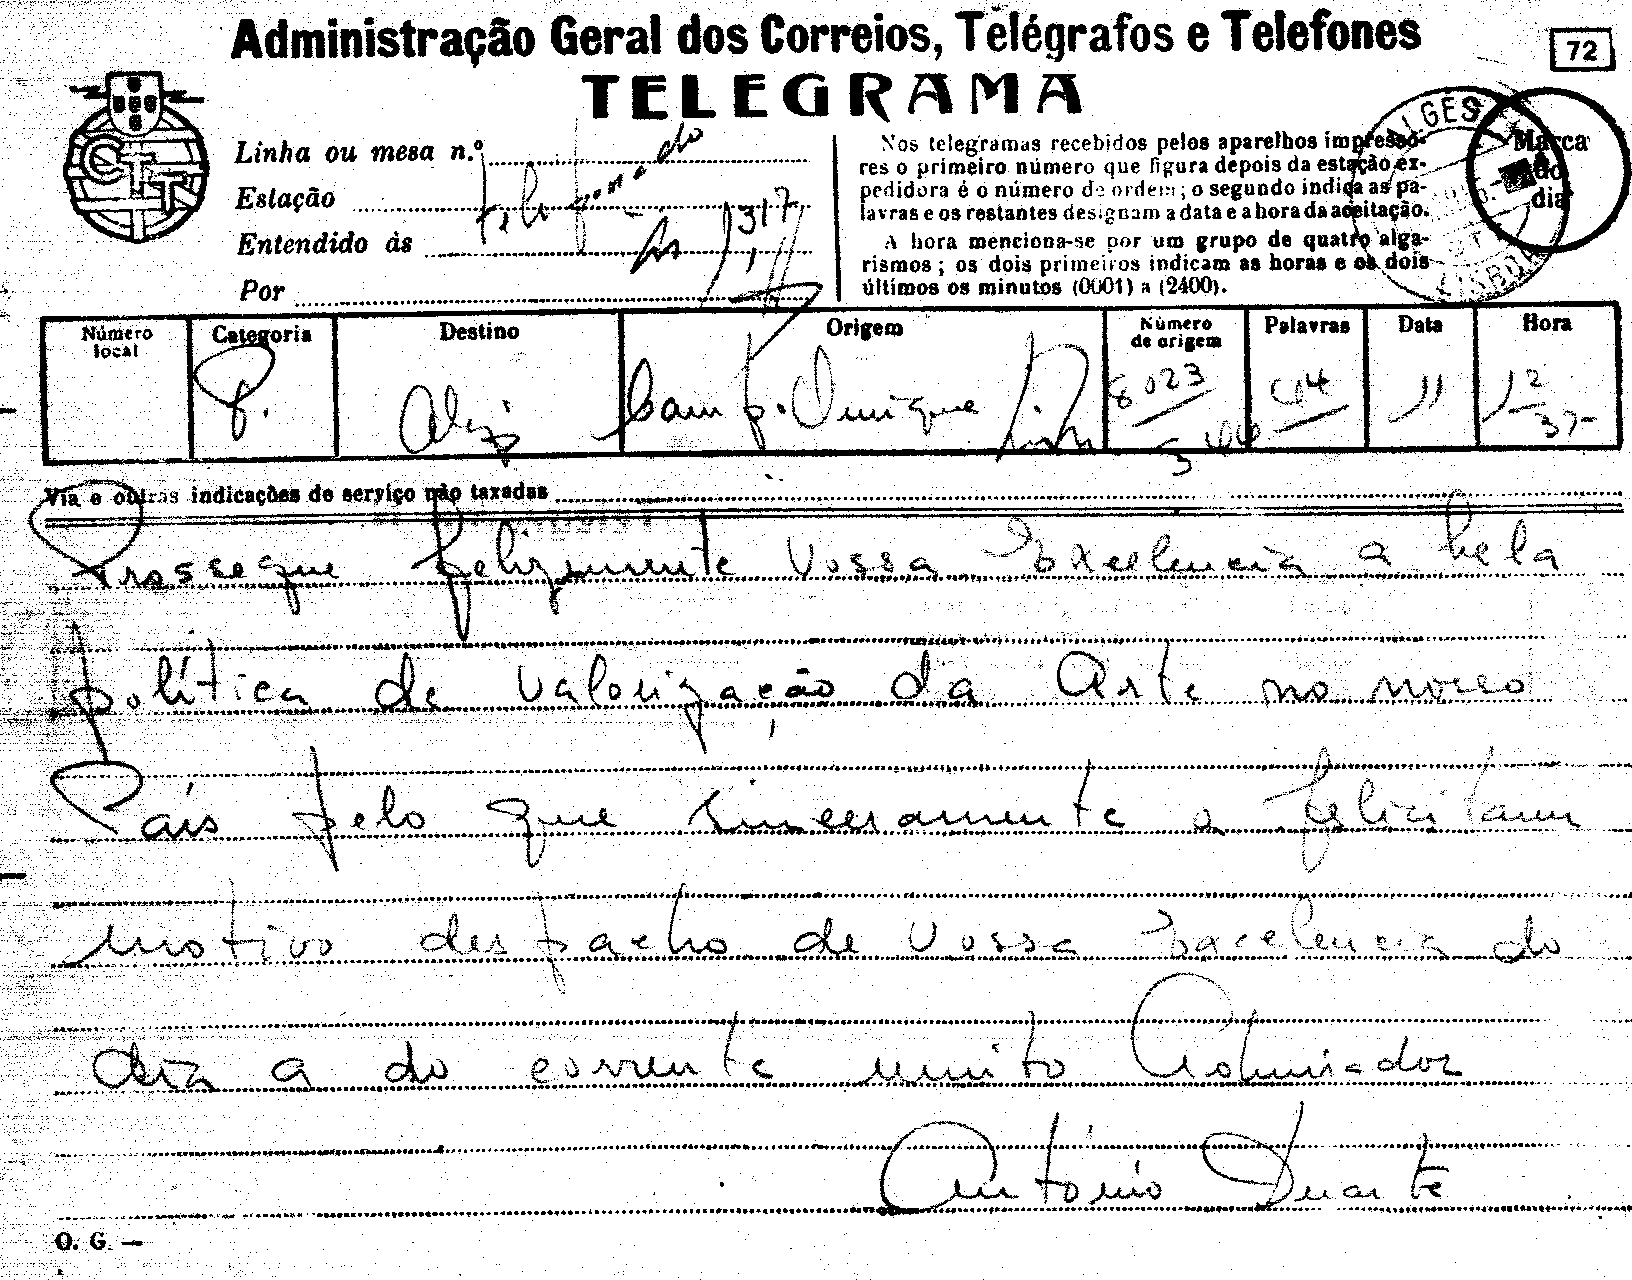 Administração Geral dos Correios, Telégrafos e Telefones
72
TELEGRAMA
CTT
ALGÉS
LISBOA
Marca do dia
Linha ou mesa n.º
Estação
Entendido às
Por
Telefonado
às 1317
Nos telegramas recebidos pelos aparelhos impresso-
res o primeiro número que figura depois da estação ex-
pedidora é o número de ordem; o segundo indica as pa-
lavras e os restantes designam a data e a hora da aceitação.
A hora menciona-se por um grupo de quatro alga-
rismos; os dois primeiros indicam as horas e os dois
últimos os minutos (0001) a (2400).
Número local Categoria Destino Origem Número de origem Palavras Data Hora
P. Algés 8023 44 11 12 37
Via e outras indicações de serviço não taxadas
Prossegue felizmente Vossa Excelencia a bela
política de valorização da Arte no nosso
País pelo que sinceramente o felicitam
motivo despacho de Vossa Excelencia do
dia 9 do corrente muito Admirador
António Duarte
O. G. —